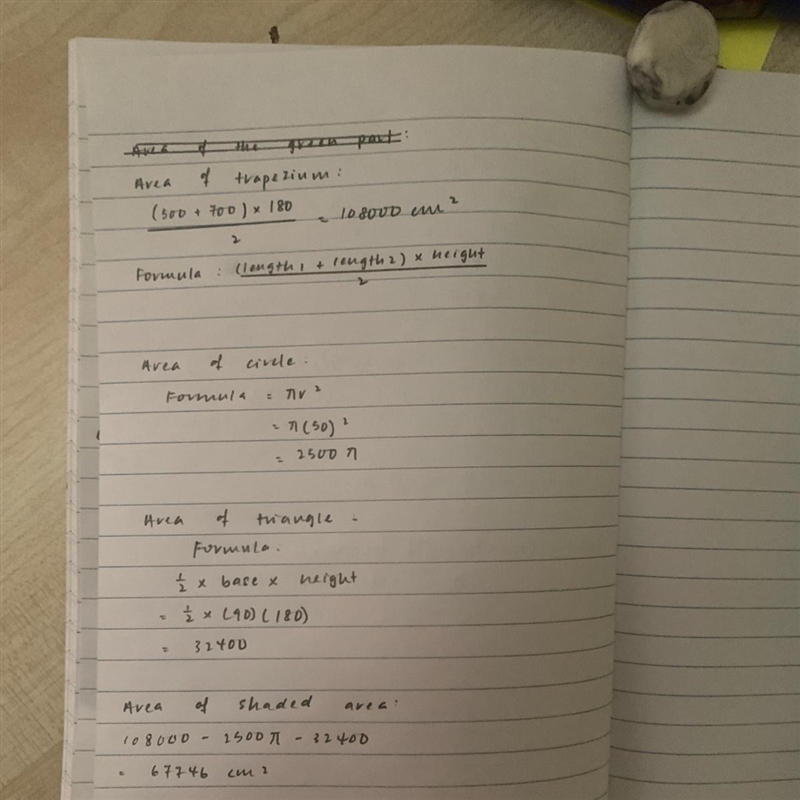 Area of the green part:
Area of trapezium:
(500 + 700) × 180
2
= 108000 cm²
Formula : (length 1 + length 2) × height
2
Area of circle.
Formula = πr²
= π(50)²
= 2500 π
Area of triangle.
Formula.
½ × base × height
= ½ × (90)(180)
= 32400
Area of shaded area:
108000 - 2500 π - 32400
= 67746 cm²